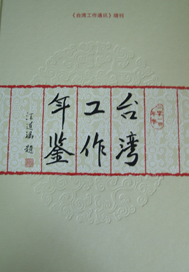 《台湾工作通讯》增刊
台湾
工作
年鉴
汪道涵 题